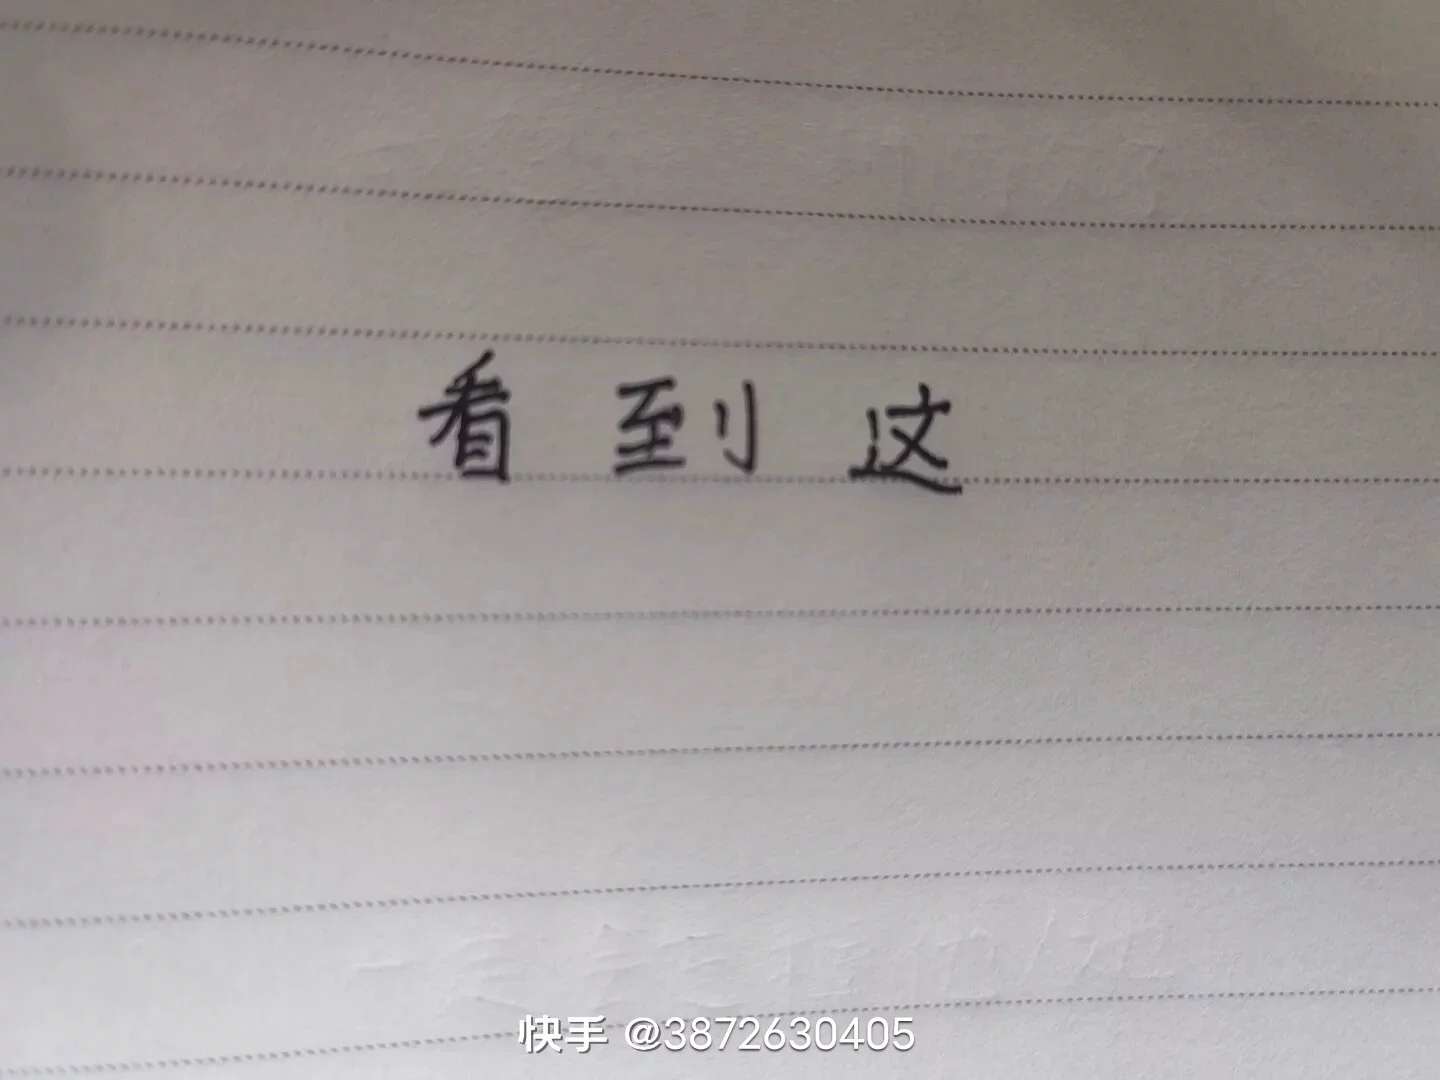 看到这
快手 @3872630405